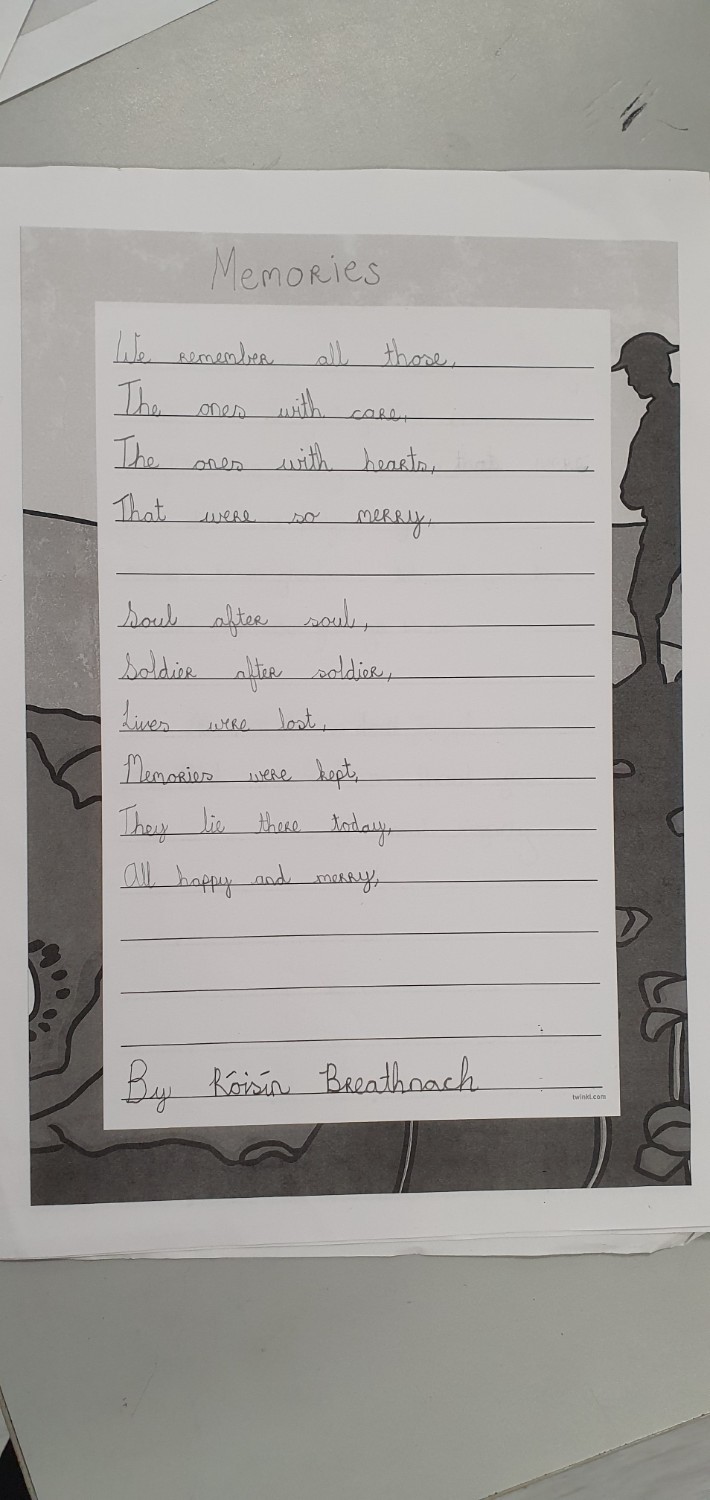 Memories
We remember all those,
The ones with care,
The ones with hearts,
That were so merry,
Soul after soul,
Soldier after soldier,
Lives were lost,
Memories were kept,
They lie there today,
All happy and merry,
By Róisín Breathnach
twinkl.com